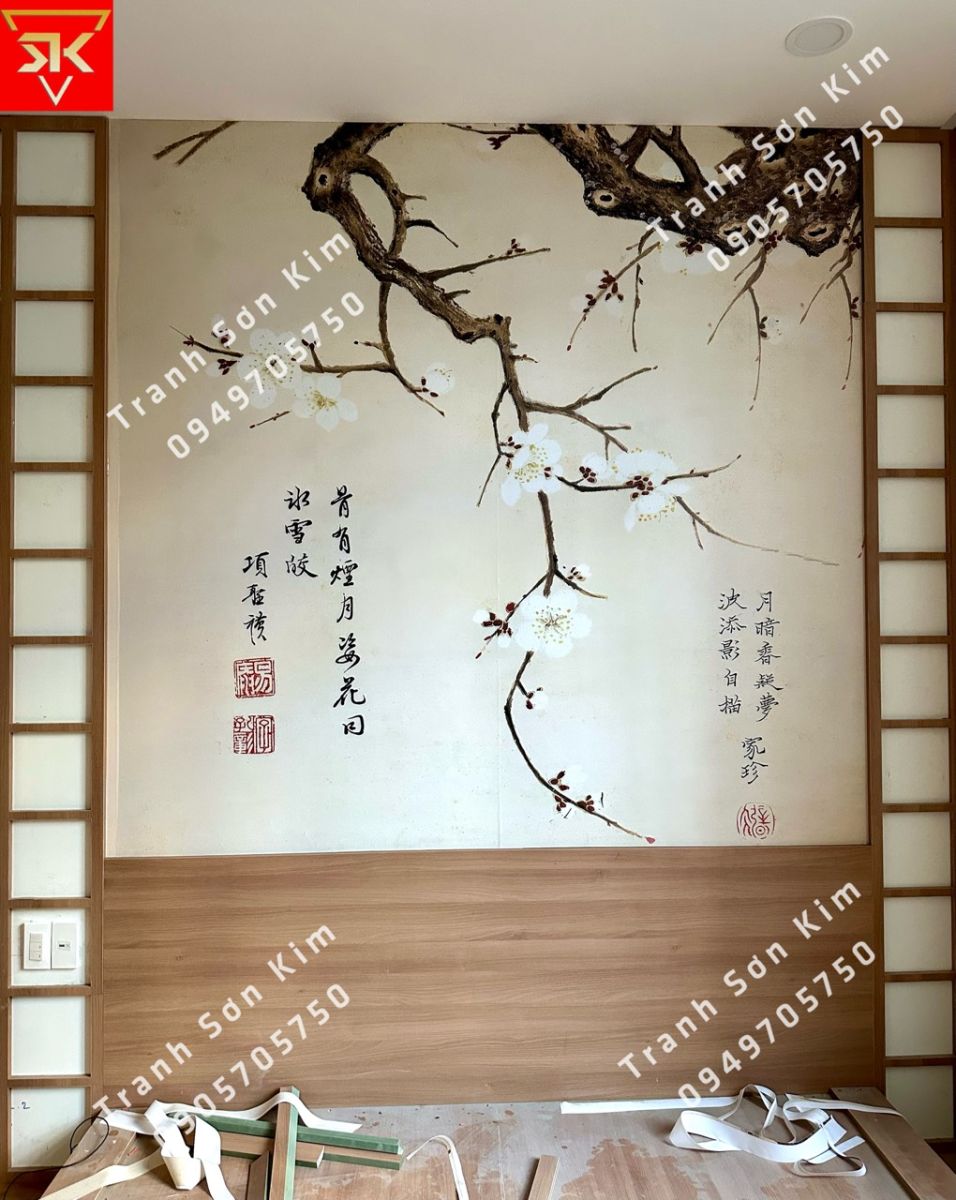 SK
Tranh Sơn Kim
0905705750
Tranh Sơn Kim
0949705750
月暗香凝夢
波添影自描
家珍
骨有煙月姿花同
冰雪皎
項聖謨
Tranh Sơn Kim
0905705750
Tranh Sơn Kim
0949705750